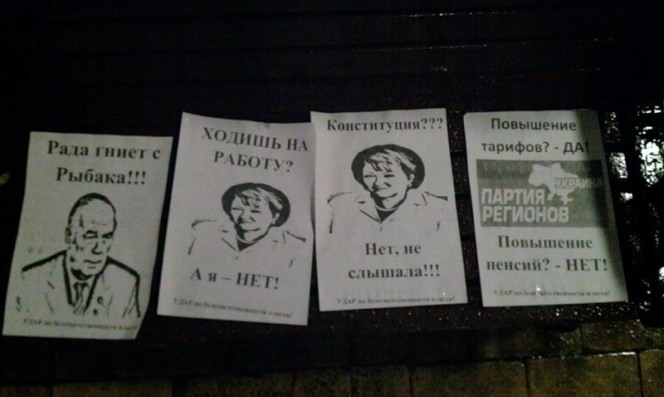 Рада гниет с
Рыбака!!!
УДАР по безответственности власти!
ХОДИШЬ НА
РАБОТУ?
А я – НЕТ!
УДАР по безответственности власти!
Конституция???
Нет, не
слышала!!!
УДАР по безответственности власти!
Повышение
тарифов? - ДА!
УКРАИНА
ПАРТИЯ
РЕГИОНОВ
Повышение
пенсий? - НЕТ!
УДАР по безответственности власти!